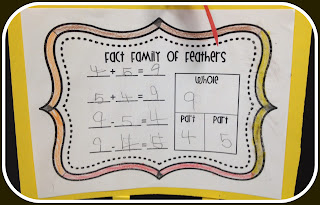 Fact Family of Feathers
4 + 5 = 9
5 + 4 = 9
9 - 5 = 4
9 - 4 = 5
Whole
9
Part Part
4 5